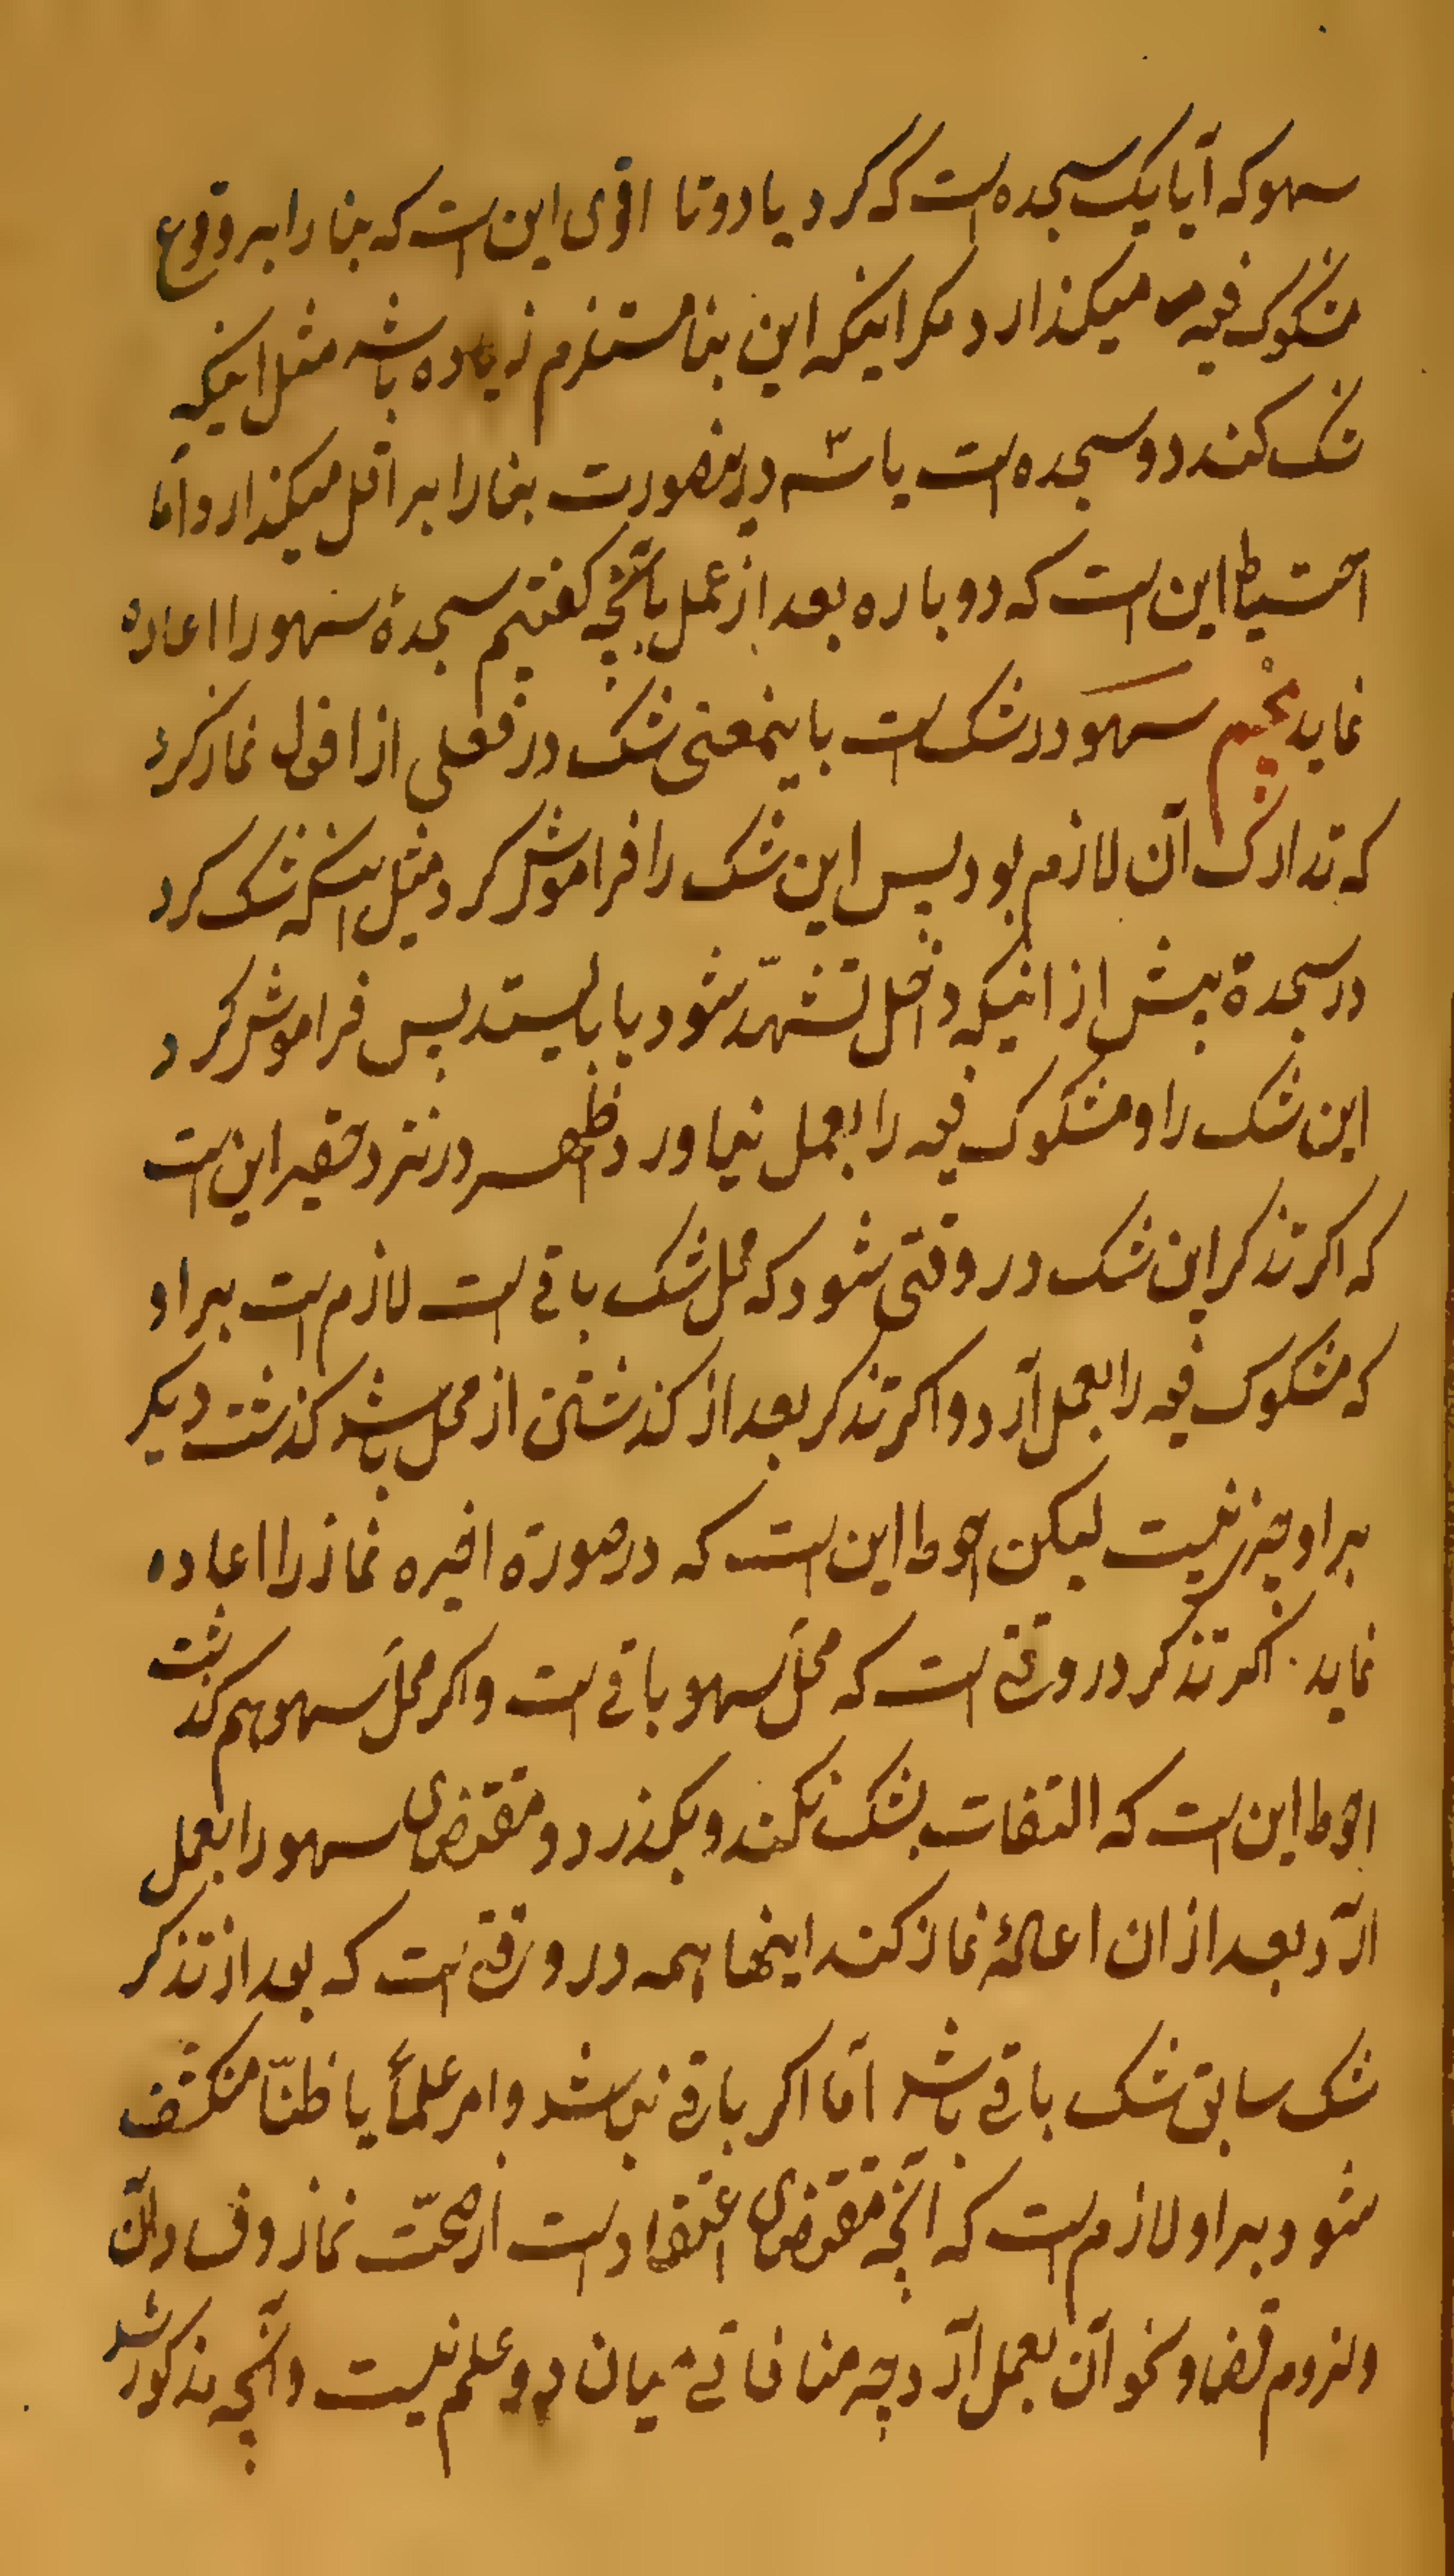 سهو که آیا یک سجده است که کرد یا دو تا اقوی این است که بنا را بر وقوع
مشکوک فیه میکذارد مکر اینکه این بنا مستلزم زیاده باشد مثل اینکه
شک کند دو سجده است یا سه درینصورت بنا را بر اقل میکذارد و امّا
احتیاط این است که دوباره بعد از عمل بآنچه کفتیم سجدهٔ سهو را اعاده
نماید پنجم سهو در شک است باینمعنی شک در فعلی از افعال نماز کرد
که تدارک آن لازم بود پس این شک را فراموش کرد مثل اینکه شک کرد
در سجدة پیش از اینکه داخل تشهّد شود یا بایستد پس فراموش کرد
این شک را و مشکوک فیه را بعمل نیاورد اظهر در نزد حقیر این است
که اکر تذکر این شک در وقتی شود که محل شک باقی است لازم است بر او
که مشکوک فیه را بعمل آرد و اکر تذکر بعد از کذشتن از محل باشد کذشت دیکر
بر او چیزی نیست لیکن احوط این است که در صورة اخیره نماز را اعاده
نماید اکر تذکر در وقتی است که محلّ سهو باقی است و اکر محلّ سهو هم کذشت
احوط این است که التفات بشک نکند و بکذرد و مقتضای سهو را بعمل
آرد و بعد از ان اعادهٔ نماز کند اینها همه در وقتی است که بعد از تذکر
شک سابق شک باقی باشد امّا اکر باقی نباشد و امر علماً یا ظنّاً منکشف
شود بر او لازم است که آنچه مقتضای اعتقاد است از صحّت نماز و فساد آن
و لزوم قضا و نحو آن بعمل آرد چه منافاتی میان دو علم نیست و آنچه مذکور شد